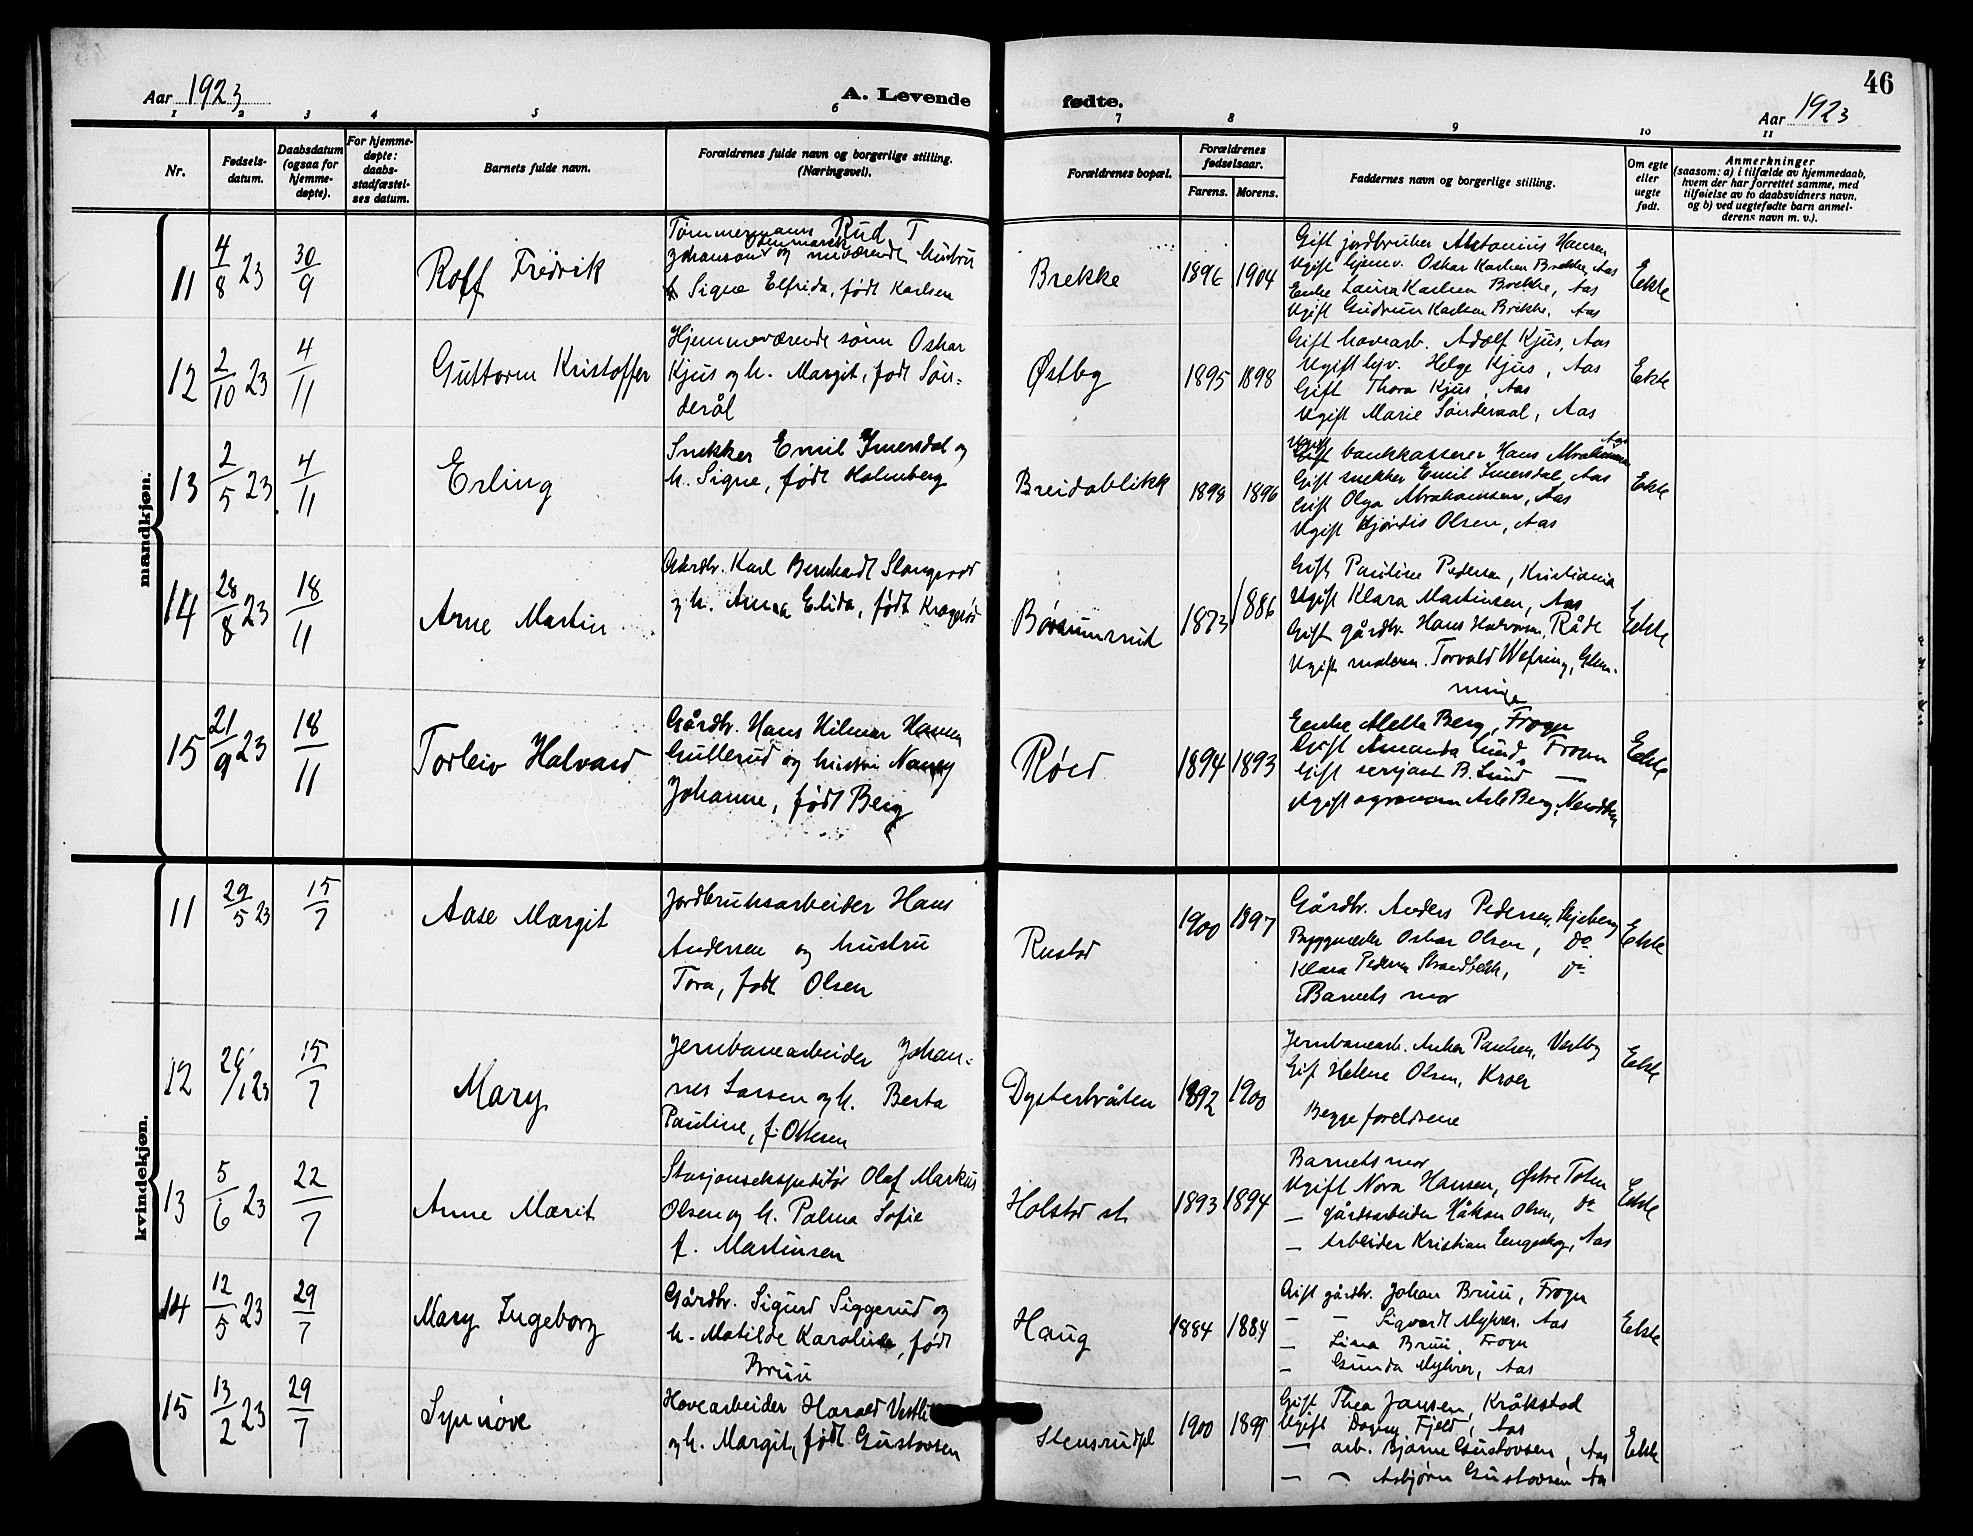 46
Aar 1923
A. Levende
fødte.
Aar 1923
1 2 3 4 5 6 7 8 9 10 11
Nr.
Fødsels-
datum.
Daabsdatum
(ogsaa for
hjemme-
døpte).
For hjemme-
døpte:
daabs-
stadfæstel-
ses datum.
Barnets fulde navn.
Forældrenes fulde navn og borgerlige stilling.
(Næringsvei).
Forældrenes bopæl.
Forældrenes
fødselsaar.
Farens. Morens.
Faddernes navn og borgerlige stilling.
Om egte
eller
uegte
født.
Anmerkninger
(saasom: a) i tilfælde av hjemmedaab,
hvem der har forrettet samme, med
tilføielse av to daabsvidners navn,
og b) ved uegtefødte barn anmel-
derens navn m. v.).
mandkjøn.
11
4/8 23
30/9
Rolf Fredrik
Tømmermann Rud T
Johanson Danmark og nuværende hustru
Signe Elfrida, født Karlsen
Brekke
1896 1904
Gift jordbruker Antonius Hansen
Ugift hjemv. Oskar Karlsen Brekke, Aas
Enke Laura Karlsen Brekke, Aas
Ugift Gudrun Karlsen Brekke, Aas
Ekte
12
2/10 23
4/11
Guttorm Kristoffer
Hjemmeværende sønn Oskar
Kjus og h. Margit, født Søn-
derål
Østby
1895 1898
Gift havearb. Adolf Kjus, Aas
Ugift hjv. Helge Kjus, Aas
Gift Thora Kjus, Aas
Ugift Marie Sønderaal, Aas
Ekte
13
2/5 23
4/11
Erling
Snekker Emil Imersdal og
h. Signe, født Holmberg
Breidablikk
1898 1896
Ugift bankkasserer Hans Abrahamsen Aas
Gift snekker Emil Imersdal, Aas
Gift Olga Abrahamsen, Aas
Ugift Hjørdis Olsen, Aas
Ekte
14
28/8 23
18/11
Arne Martin
Gårdbr. Karl Bernhardt Slangsvold
og h. Anna Elida, født Kragerød
Børsumrud
1873 1886
Gift Pauline Pedersen, Kristiania
Ugift Klara Martinsen, Aas
Gift gårdbr. Hans Halvorsen, Råde
Ugift malersv. Torvald Wefring, Glem-
minge
Ekte
15
21/9 23
18/11
Torleiv Halvard
Gårdbr. Hans Hilmar Hansen
Gullerud og hustru Nanny
Johanne, født Berg
Røed
1894 1893
Enke Alette Berg, Frogn
Gift Amanda Lund, Frogn
Gift serjant B. Lund —
Ugift agronom Atle Berg, Nesodden
Ekte
kvindekjøn.
11
29/5 23
15/7
Aase Margit
Jordbruksarbeider Hans
Andersen og hustru
Tora, født Olsen
Rustad
1900 1897
Gårdbr. Anders Pedersen, Skjeberg
Byggmester Oskar Olsen, do
Klara Pedersen Strandbekk, do
Barnets mor
Ekte
12
29/1 23
15/7
Mary
Jernbanearbeider Johan-
nes Larsen og h. Berta
Pauline, f. Ottesen
Dysterbråten
1892 1900
Jernbanearb. Anker Paulsen, Vestby
Gift Helene Olsen, Kroer
Begge foreldrene
Ekte
13
5/6 23
22/7
Anne Marit
Stasjonsekspeditør Olaf Markus
Olsen og h. Palma Sofie
f. Martinsen
Holstad st.
1893 1894
Barnets mor
Ugift Nora Hansen, Østre Toten
— gårdsarbeider Håkon Olsen, do
— Arbeider Kristian Engeskog, Aas
Ekte
14
12/5 23
29/7
Mary Ingeborg
Gårdbr. Sigurd Siggerud og
h. Matilde Karoline, født
Bruu
Haug
1884 1884
Gift gårdbr. Johan Bruu, Frogn
— — Sigvardt Myhrer, Aas
— Lina Bruu, Frogn
— Gunda Myhrer, Aas
Ekte
15
13/2 23
29/7
Synnøve
Havearbeider Harald Vestli
og h. Margit, født Gustavsen
Stensrudpl
1900 1895
Gift Thea Jansen, Kråkstad
Ugift Dagny Fjeld, Aas
— arb. Bjarne Gustavsen, Aas
— — Asbjørn Gustavsen Aas
Ekte